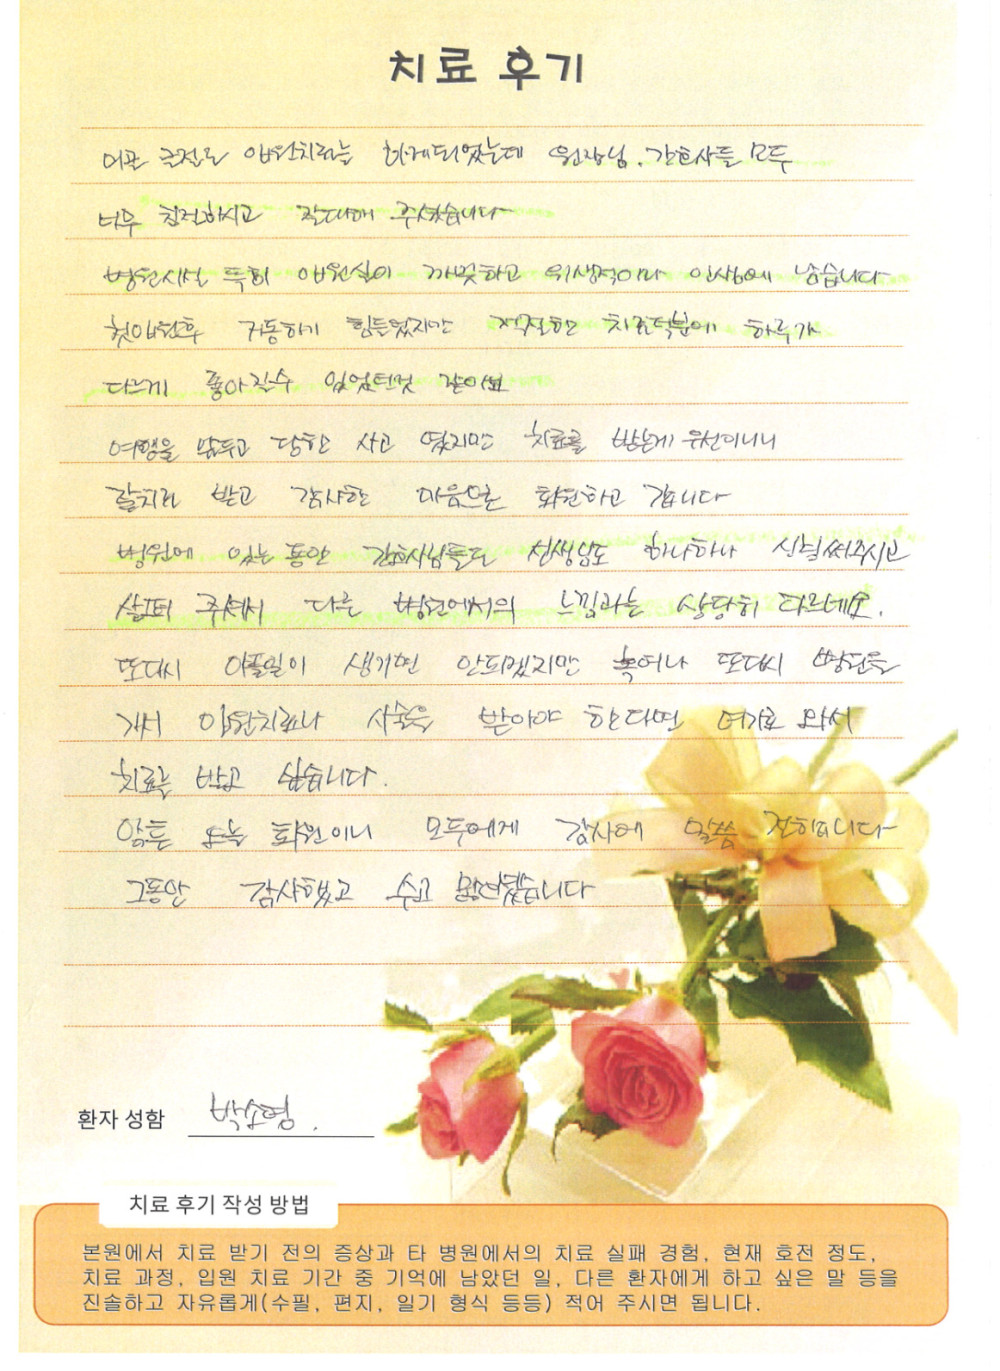 치료 후기
골절로 입원치료를 하게되었는데 원장님, 간호사들 모두
너무 친절하시고 잘대해 주셨습니다
병원시설 특히 입원실이 깨끗하고 위생적이라 인상에 남습니다
첫입원후 거동하기 힘들었지만 적절한 치료덕분에 하루가
다르게 좋아질수 있었던것 같아요
여행을 앞두고 당한 사고 였지만 치료를 받는게 우선이니
잘치료 받고 감사한 마음으로 퇴원하고 갑니다
병원에 있는 동안 간호사님들도 선생님도 하나하나 신경써주시고
살펴 주셔서 다른 병원에서의 느낌과는 상당히 다르네요.
또다시 아플일이 생기면 안되겠지만 혹여나 또다시 병원을
가서 입원치료나 시술을 받아야 한다면 여기로 와서
치료를 받고 싶습니다.
암튼 오늘 퇴원이니 모두에게 감사에 말씀 전합니다
그동안 감사했고 수고 많으셨습니다
환자 성함 박소영.
치료 후기 작성 방법
본원에서 치료 받기 전의 증상과 타 병원에서의 치료 실패 경험, 현재 호전 정도,
치료 과정, 입원 치료 기간 중 기억에 남았던 일, 다른 환자에게 하고 싶은 말 등을
진솔하고 자유롭게(수필, 편지, 일기 형식 등등) 적어 주시면 됩니다.